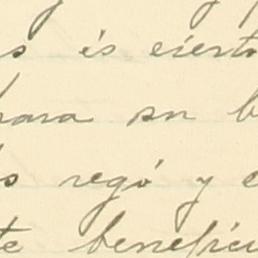 s és ciert
para su b
s regó y e
te benefici